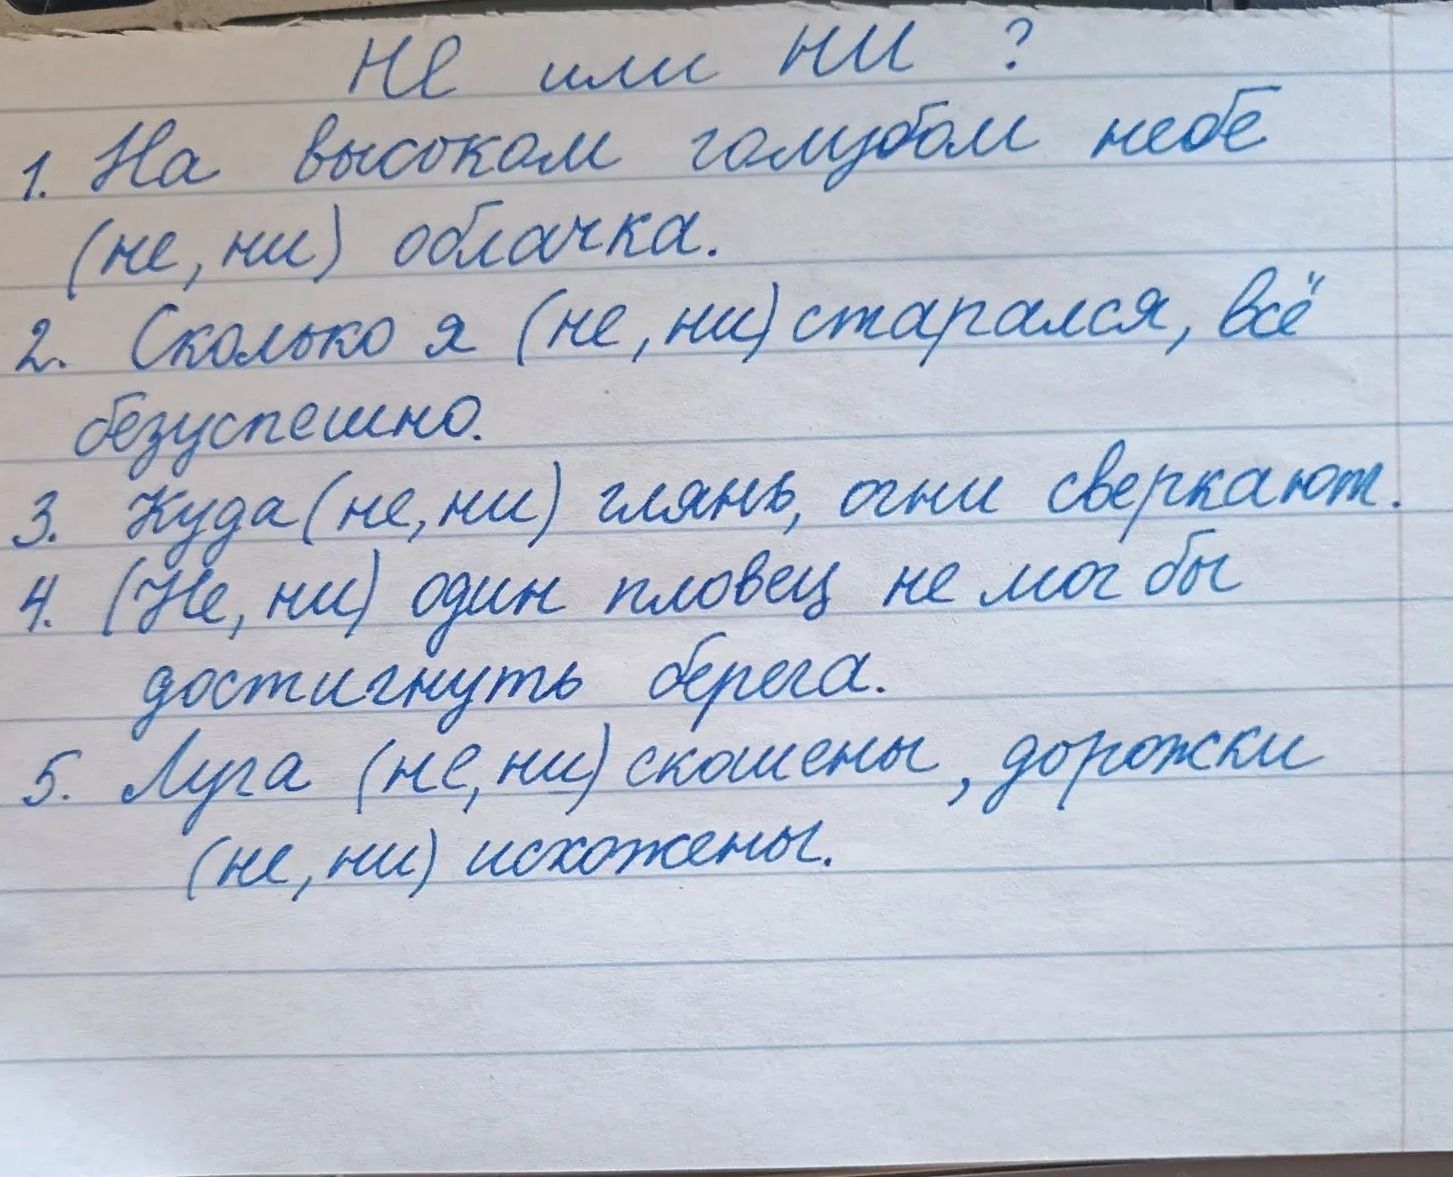 Не или ни ?
1. На высоком голубом небе
(не, ни) облачка.
2. Сколько я (не, ни) старался, всё
безуспешно.
3. Куда (не, ни) глянь, огни сверкают.
4. (Не, ни) один пловец не мог бы
достигнуть берега.
5. Луга (не, ни) скошены, дорожки
(не, ни) исхожены.